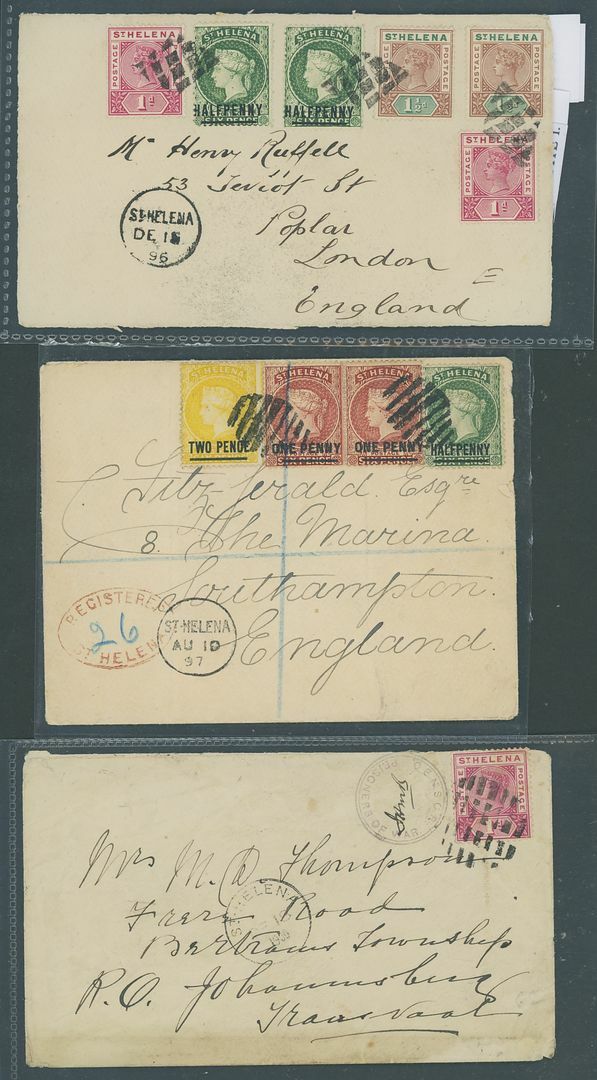 ST HELENA ST HELENA ST HELENA ST HELENA ST HELENA
POSTAGE POSTAGE POSTAGE POSTAGE POSTAGE POSTAGE
1d HALFPENNY HALFPENNY 1½d
SIX PENCE SIX PENCE
ST HELENA
POSTAGE POSTAGE
1d
Mr Henry Ruffell
53 Teviot St
Poplar
London
England
E
ST HELENA
DE 18
96
ST HELENA ST HELENA ST HELENA
TWO PENCE ONE PENNY ONE PENNY HALFPENNY
SIX PENCE SIX PENCE SIX PENCE
Fitz-Gerald Esqre
8. The Marina.
Southampton.
England.
REGISTERED
26
ST HELENA
ST HELENA
AU 10
97
ST HELENA
POSTAGE POSTAGE
CENSOR
PRISONERS OF WAR
Mrs M. D Thompson
Road
Bertrams Township
P.O. Johannesburg
Transvaal
ST HELENA
1900